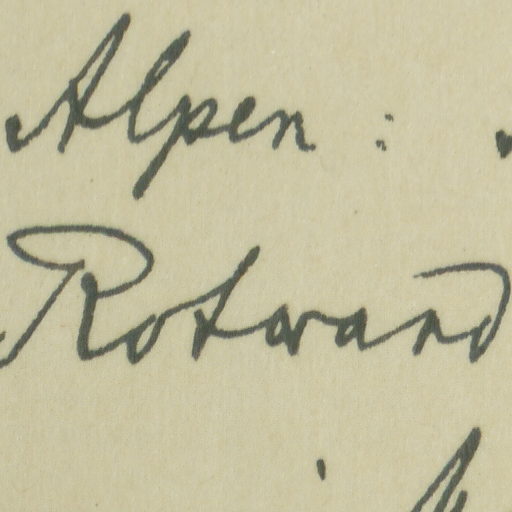 Alpen :
Rotwand